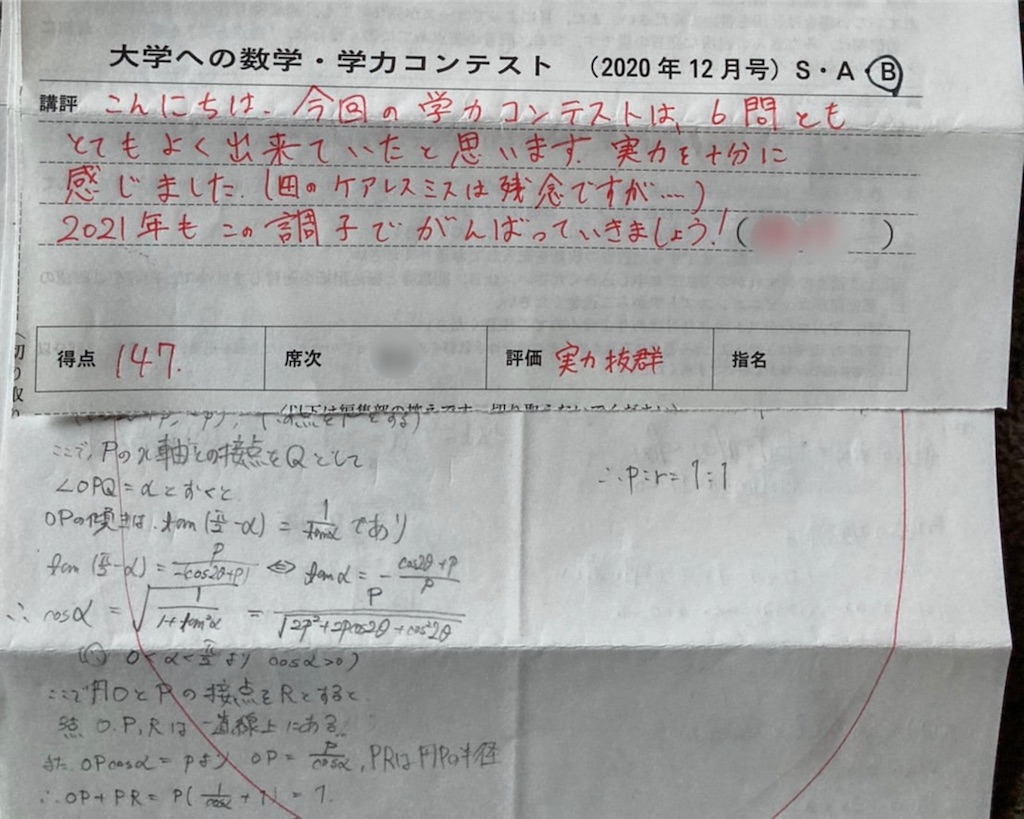 大学への数学・学力コンテスト (2020年12月号) S・A・B
講評 こんにちは、今回の学力コンテストは、6問とも
とてもよく出来ていたと思います。実力を十分に
感じました。(1回のケアレスミスは残念ですが…)
2021年もこの調子でがんばっていきましょう!( )
得点 147. 席次 評価 実力抜群 指名
(以下は編集部の控えです。切り取らないでください)
ここで、Pのx軸との接点をQとして
∠OPQ=αとおくと
OPの傾きは、tan(π/2-α) = 1/tanα であり
tan(π/2-α) = p/-(cos2θ+p) ⇔ tanα = - (cos2θ+p)/p
∴ cosα = √(1/(1+tan²α)) = p/√(2p²+2pcos2θ+cos²2θ)
(∵ 0<α<π/2より cosα>0)
ここで円OとPの接点をRとすると
点O.P,Rは一直線上にある。
また OPcosα=pより OP= p/cosα, PRは円Pの半径
∴OP+PR= p(1/cosα +1) = 1.
∴p:r=1:1